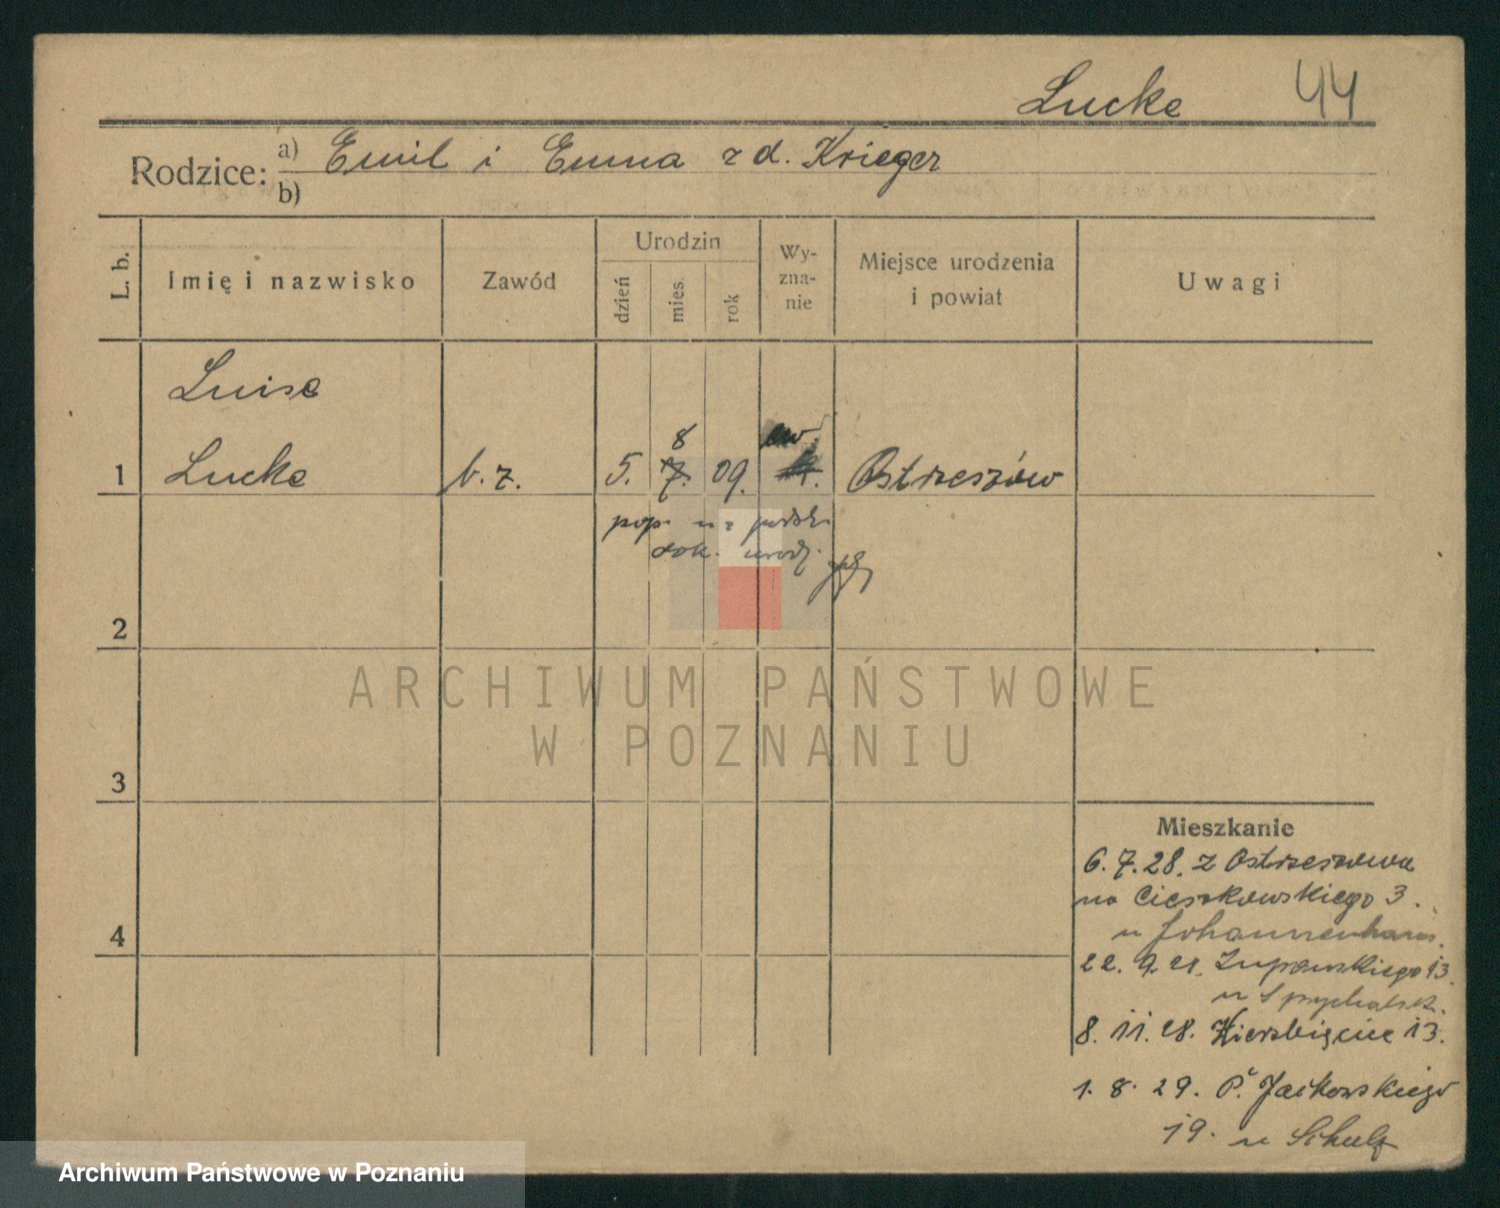 Lucke 44
Rodzice: a) Emil i Emma z d. Krieger
b)
L. b.
Imię i nazwisko
Zawód
Urodzin
dzień
mies.
rok
Wy-
zna-
nie
Miejsce urodzenia
i powiat
Uwagi
Luise
8 ew.
1 Lucke b. z. 5. 7. 09. Ostrzeszów
pop. na podst.
dok. urodz.
2
ARCHIWUM PAŃSTWOWE
W POZNANIU
3
Mieszkanie
6. 7. 28. z Ostrzeszowa
na Cieszkowskiego 3.
4
u Johannenhaus.
22. 9. 28. Łupawskiego 13.
u
8. 11. 28. Wierzbięcice 13.
1. 8. 29. P. Jackowskiego
19. u Schulz
Archiwum Państwowe w Poznaniu